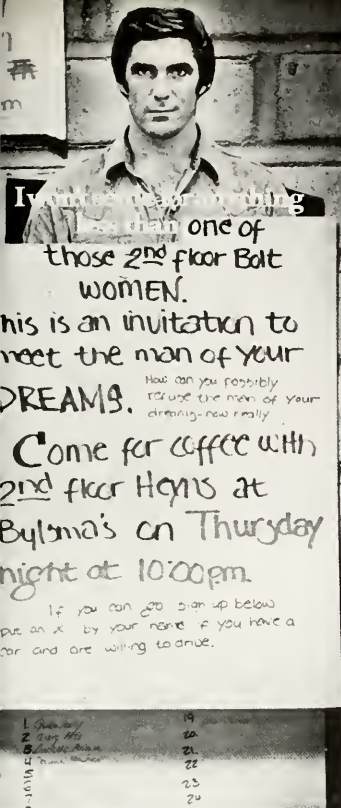 m
I won't settle for anything
less than one of
those 2nd floor Bolt
WOMEN.
his is an invitation to
meet the man of your
DREAMS. How can you possibly
refuse the men of your
dreams-now really
Come for coffee with
2nd floor Heyns at
Bylsma's on Thursday
night at 10:00pm.
If you can go sign up below
put an x by your name if you have a
car and are willing to drive.
1. 19
2 20
3 21
4 22
5 23
24